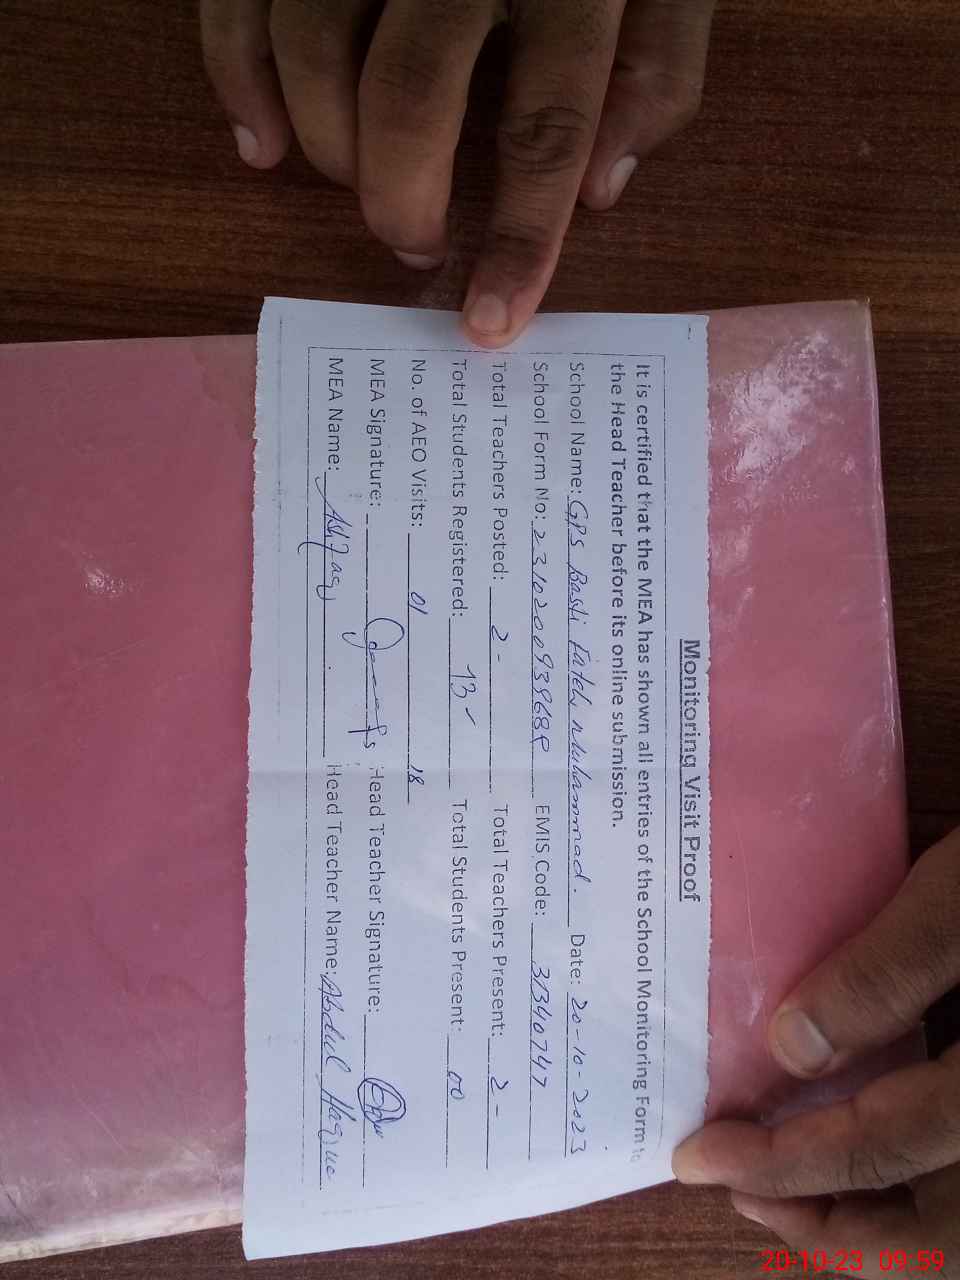 Monitoring Visit Proof
It is certified that the MEA has shown all entries of the School Monitoring Form to
the Head Teacher before its online submission.
School Name: GPS Basti Fateh Muhammad. Date: 20-10-2023
School Form No: EMIS Code: 31340747
Total Teachers Posted: 2- Total Teachers Present: 2-
Total Students Registered: 73 Total Students Present: 00
No. of AEO Visits: 01
MEA Signature: Head Teacher Signature:
MEA Name: Ashfaq Head Teacher Name: Abdul Haque
20-10-23 09:59